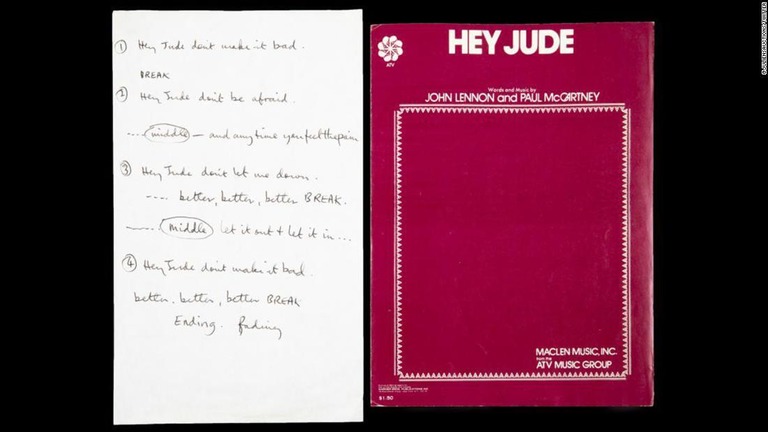 ① Hey Jude don't make it bad.
BREAK
② Hey Jude don't be afraid.
.... middle — and anytime you feel the pain
③ Hey Jude don't let me down.
---- better, better, better BREAK.
middle let it out & let it in ...
④ Hey Jude don't make it bad.
better, better, better BREAK
Ending. fading
HEY JUDE
ATV
Words and Music by
JOHN LENNON and PAUL McCARTNEY
MACLEN MUSIC, INC.
from the
ATV MUSIC GROUP
$1.50
©JULIENSAUCTIONS/TWITTER